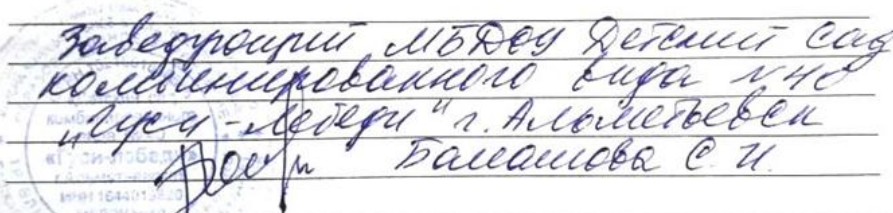 Заведующий МБДОУ Детский сад
комбинированного вида №48
"Гуси-лебеди" г. Альметьевск
Балашова С. И.
«Гуси-лебеди»